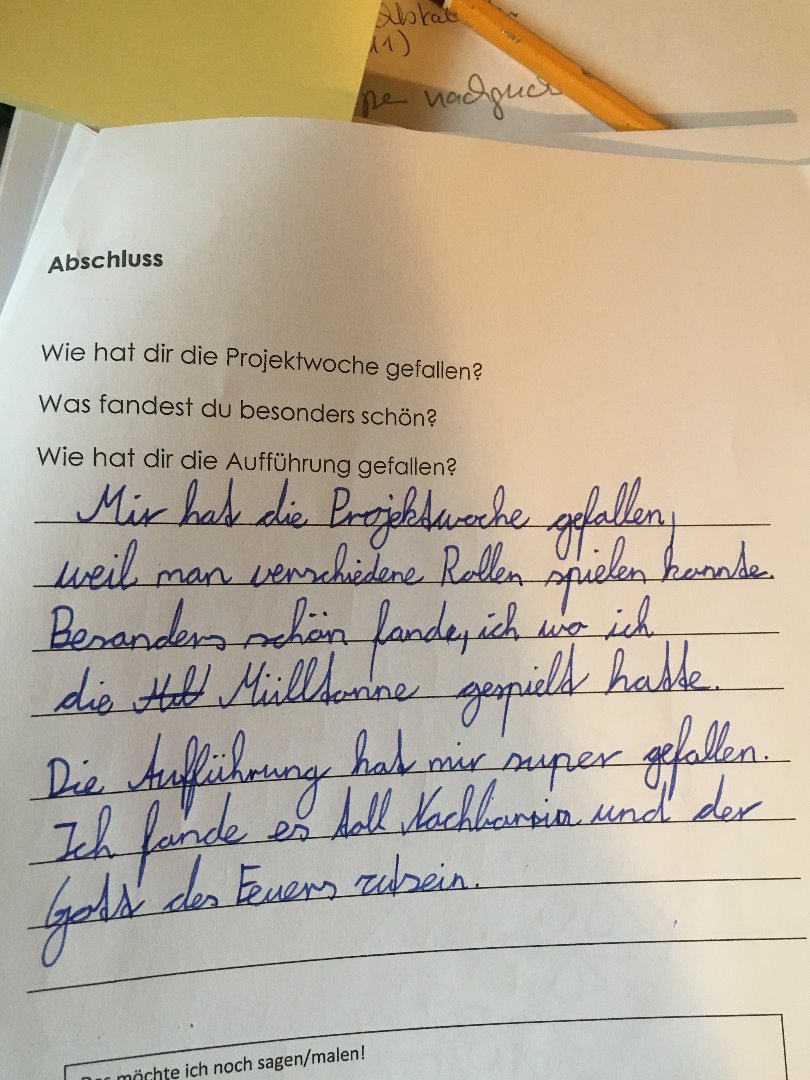 11)
nachguck
Abschluss
Wie hat dir die Projektwoche gefallen?
Was fandest du besonders schön?
Wie hat dir die Aufführung gefallen?
Mir hat die Projektwoche gefallen,
weil man verschiedene Rollen spielen konnte.
Besonders schön fande, ich wo ich
die Mülltonne gespielt hatte.
Die Aufführung hat mir super gefallen.
Ich fande es toll Nachbarin und der
Gott des Feuers zusein.
möchte ich noch sagen/malen!